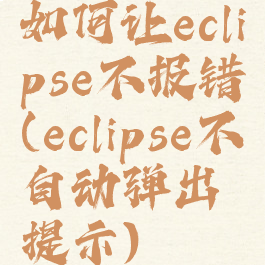 如何让ecli
pse不报错
(eclipse不
自动弹出
提示)